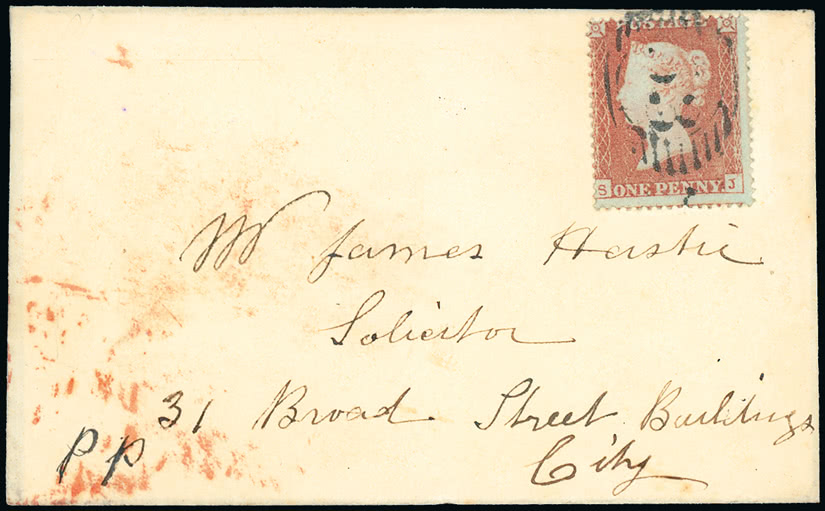 POSTAGE
S ONE PENNY. J
Mr James Hastie
Solicitor
31 Broad Street Buildings
City
PP